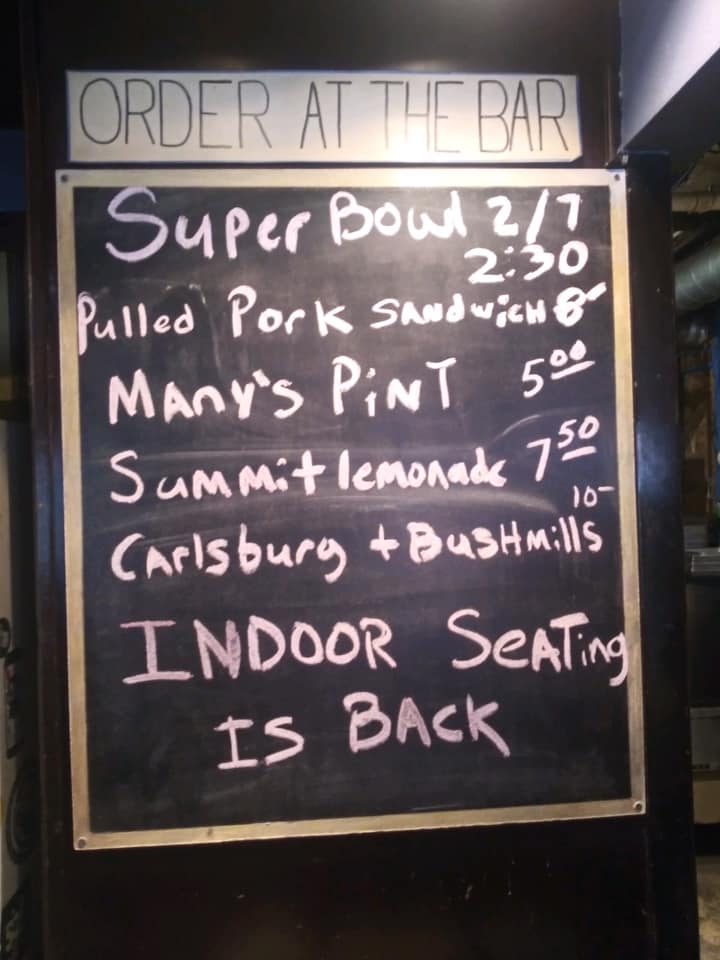 ORDER AT THE BAR
Super Bowl 2/7
2:30
Pulled Pork SANDwiCH 8-
MAny's PiNT 5 00
Summit lemonade 7 50
10-
CArlsburg + BusHmills
INDOOR SeATing
IS BACK